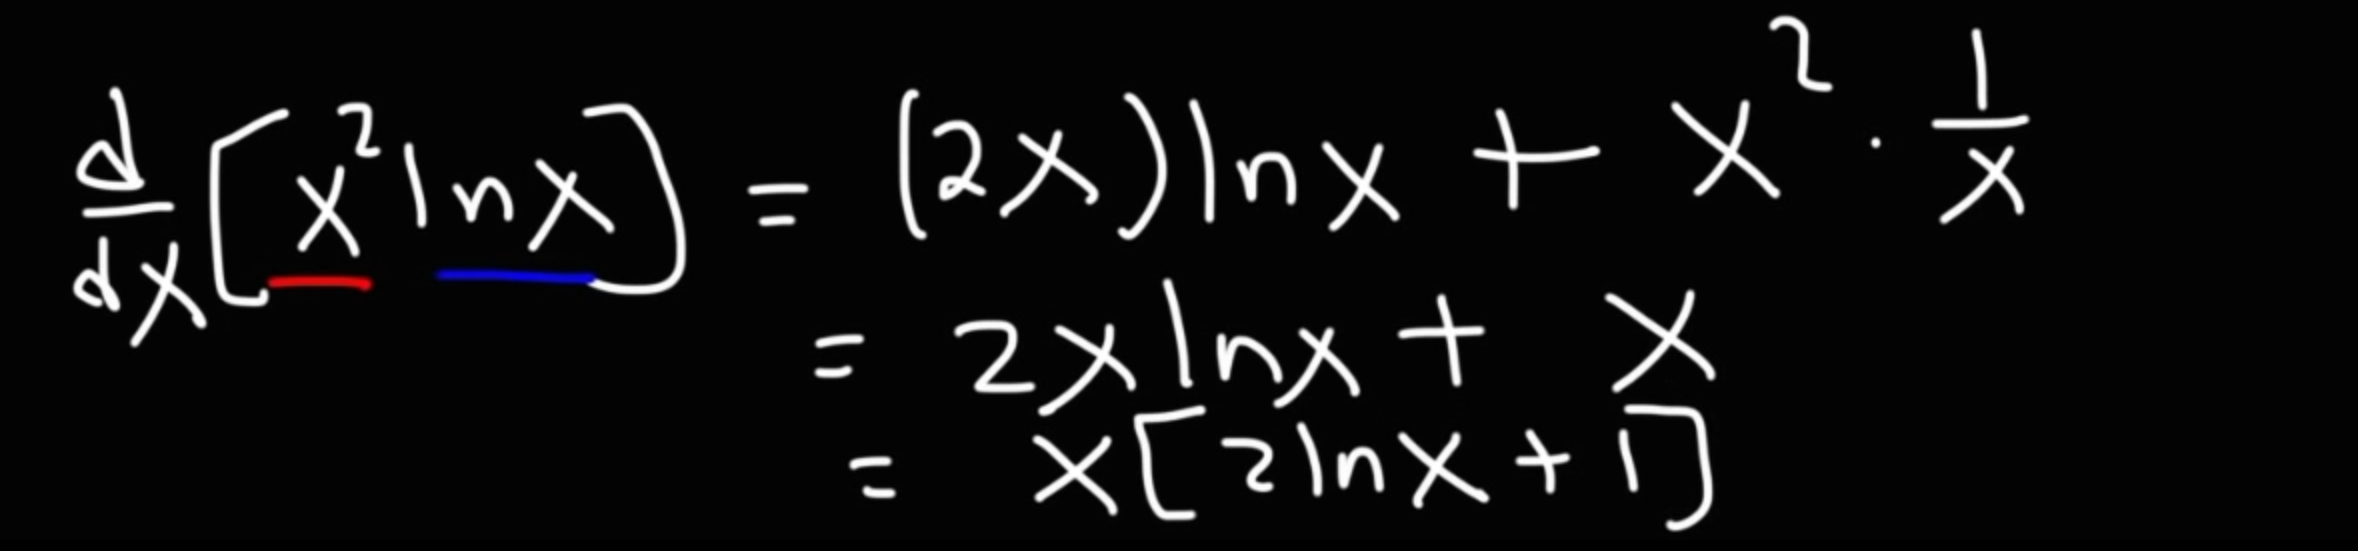 d/dx [x² ln x] = (2x) ln x + x² · 1/x
= 2x ln x + x
= x[2 ln x + 1]